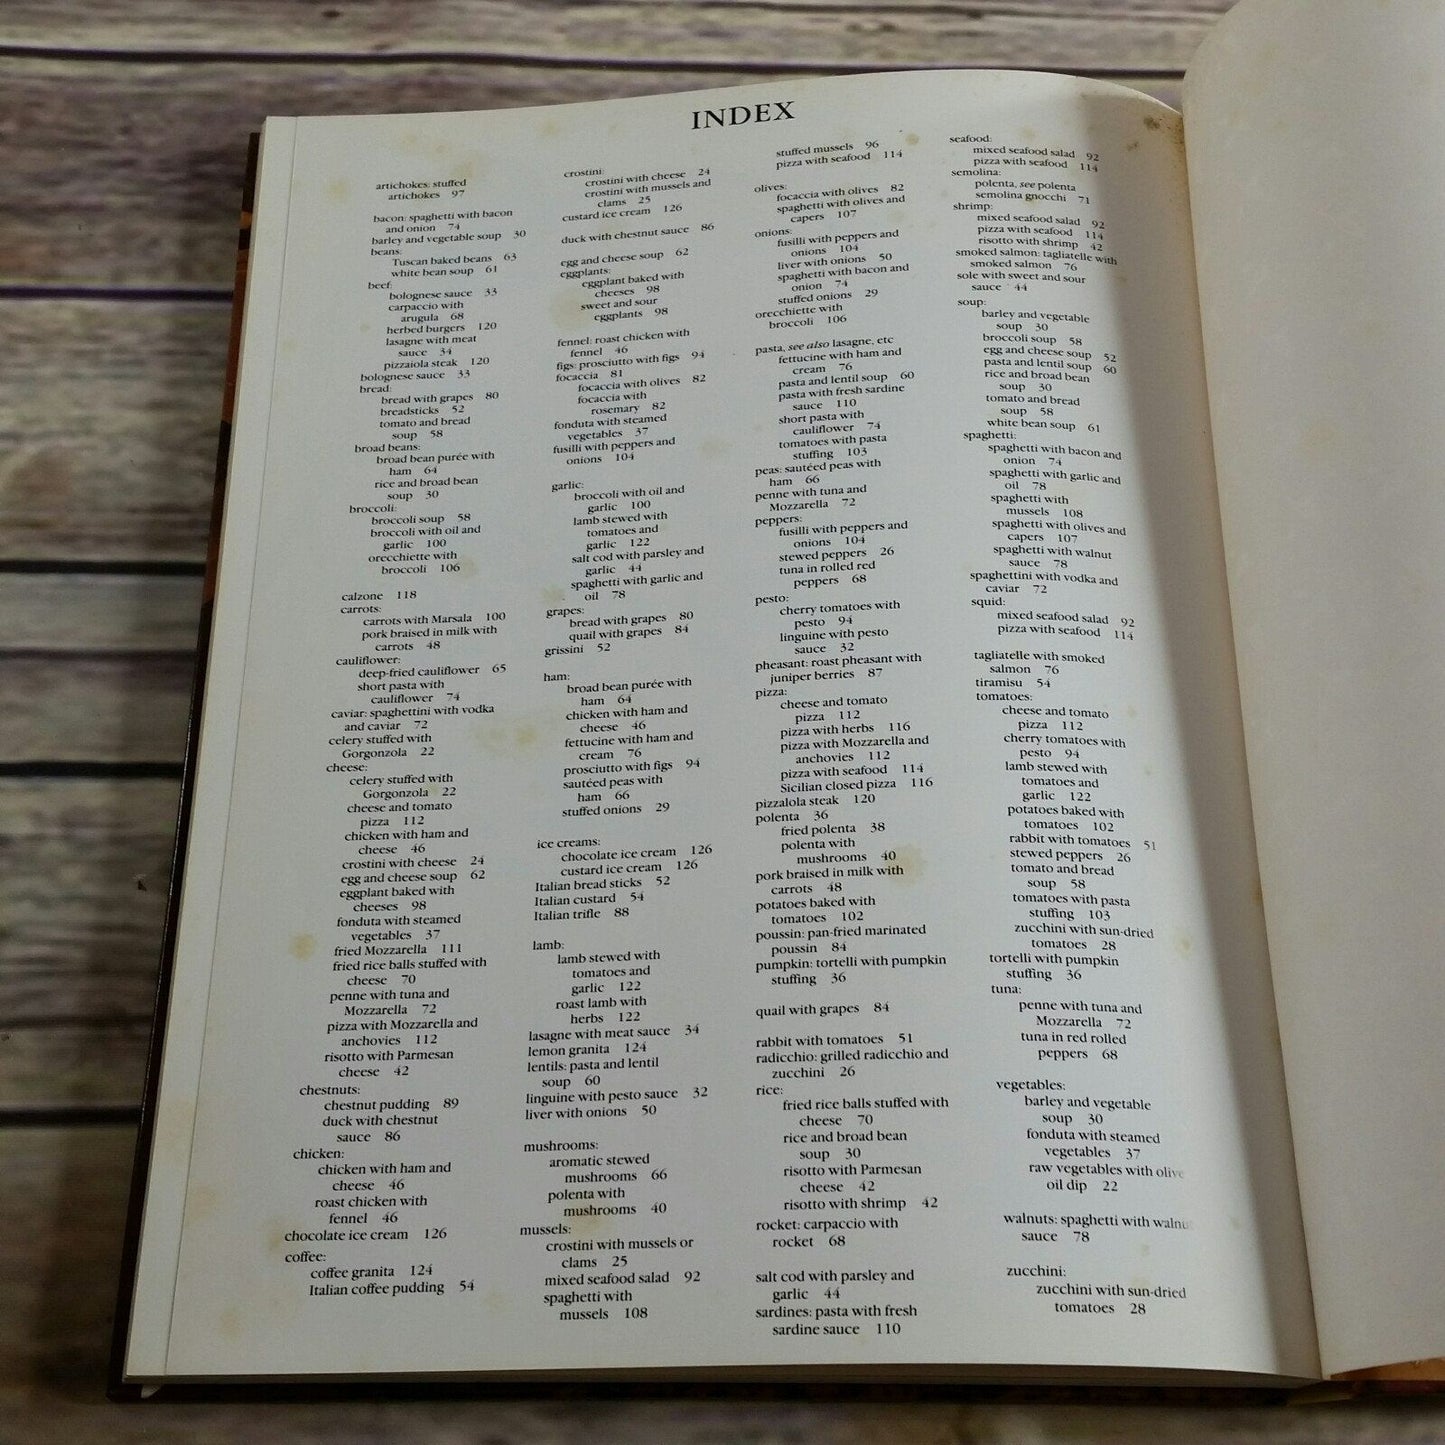 INDEX
artichokes: stuffed
artichokes 97
bacon: spaghetti with bacon
and onion 74
barley and vegetable soup 30
beans:
Tuscan baked beans 63
white bean soup 61
beef:
bolognese sauce 33
carpaccio with
arugula 68
herbed burgers 120
lasagne with meat
sauce 34
pizzaiola steak 120
bolognese sauce 33
bread:
bread with grapes 80
breadsticks 52
tomato and bread
soup 58
broad beans:
broad bean purée with
ham 64
rice and broad bean
soup 30
broccoli:
broccoli soup 58
broccoli with oil and
garlic 100
orecchiette with
broccoli 106
calzone 118
carrots:
carrots with Marsala 100
pork braised in milk with
carrots 48
cauliflower:
deep-fried cauliflower 65
short pasta with
cauliflower 74
caviar: spaghettini with vodka
and caviar 72
celery stuffed with
Gorgonzola 22
cheese:
celery stuffed with
Gorgonzola 22
cheese and tomato
pizza 112
chicken with ham and
cheese 46
crostini with cheese 24
egg and cheese soup 62
eggplant baked with
cheeses 98
fonduta with steamed
vegetables 37
fried Mozzarella 111
fried rice balls stuffed with
cheese 70
penne with tuna and
Mozzarella 72
pizza with Mozzarella and
anchovies 112
risotto with Parmesan
cheese 42
chestnuts:
chestnut pudding 89
duck with chestnut
sauce 86
chicken:
chicken with ham and
cheese 46
roast chicken with
fennel 46
chocolate ice cream 126
coffee:
coffee granita 124
Italian coffee pudding 54
crostini:
crostini with cheese 24
crostini with mussels and
clams 25
custard ice cream 126
duck with chestnut sauce 86
egg and cheese soup 62
eggplants:
eggplant baked with
cheeses 98
sweet and sour
eggplants 98
fennel: roast chicken with
fennel 46
figs: prosciutto with figs 94
focaccia 81
focaccia with olives 82
focaccia with
rosemary 82
fonduta with steamed
vegetables 37
fusilli with peppers and
onions 104
garlic:
broccoli with oil and
garlic 100
lamb stewed with
tomatoes and
garlic 122
salt cod with parsley and
garlic 44
spaghetti with garlic and
oil 78
grapes:
bread with grapes 80
quail with grapes 84
grissini 52
ham:
broad bean purée with
ham 64
chicken with ham and
cheese 46
fettucine with ham and
cream 76
prosciutto with figs 94
sautéed peas with
ham 66
stuffed onions 29
ice creams:
chocolate ice cream 126
custard ice cream 126
Italian bread sticks 52
Italian custard 54
Italian trifle 88
lamb:
lamb stewed with
tomatoes and
garlic 122
roast lamb with
herbs 122
lasagne with meat sauce 34
lemon granita 124
lentils: pasta and lentil
soup 60
linguine with pesto sauce 32
liver with onions 50
mushrooms:
aromatic stewed
mushrooms 66
polenta with
mushrooms 40
mussels:
crostini with mussels or
clams 25
mixed seafood salad 92
spaghetti with
mussels 108
stuffed mussels 96
pizza with seafood 114
olives:
focaccia with olives 82
spaghetti with olives and
capers 107
onions:
fusilli with peppers and
onions 104
liver with onions 50
spaghetti with bacon and
onion 74
stuffed onions 29
orecchiette with
broccoli 106
pasta, see also lasagne, etc
fettucine with ham and
cream 76
pasta and lentil soup 60
pasta with fresh sardine
sauce 110
short pasta with
cauliflower 74
tomatoes with pasta
stuffing 103
peas: sautéed peas with
ham 66
penne with tuna and
Mozzarella 72
peppers:
fusilli with peppers and
onions 104
stewed peppers 26
tuna in rolled red
peppers 68
pesto:
cherry tomatoes with
pesto 94
linguine with pesto
sauce 32
pheasant: roast pheasant with
juniper berries 87
pizza:
cheese and tomato
pizza 112
pizza with herbs 116
pizza with Mozzarella and
anchovies 112
pizza with seafood 114
Sicilian closed pizza 116
pizzalola steak 120
polenta 36
fried polenta 38
polenta with
mushrooms 40
pork braised in milk with
carrots 48
potatoes baked with
tomatoes 102
poussin: pan-fried marinated
poussin 84
pumpkin: tortelli with pumpkin
stuffing 36
quail with grapes 84
rabbit with tomatoes 51
radicchio: grilled radicchio and
zucchini 26
rice:
fried rice balls stuffed with
cheese 70
rice and broad bean
soup 30
risotto with Parmesan
cheese 42
risotto with shrimp 42
rocket: carpaccio with
rocket 68
salt cod with parsley and
garlic 44
sardines: pasta with fresh
sardine sauce 110
seafood:
mixed seafood salad 92
pizza with seafood 114
semolina:
polenta, see polenta
semolina gnocchi 71
shrimp:
mixed seafood salad 92
pizza with seafood 114
risotto with shrimp 42
smoked salmon: tagliatelle with
smoked salmon 76
sole with sweet and sour
sauce 44
soup:
barley and vegetable
soup 30
broccoli soup 58
egg and cheese soup 52
pasta and lentil soup 60
rice and broad bean
soup 30
tomato and bread
soup 58
white bean soup 61
spaghetti:
spaghetti with bacon and
onion 74
spaghetti with garlic and
oil 78
spaghetti with
mussels 108
spaghetti with olives and
capers 107
spaghetti with walnut
sauce 78
spaghettini with vodka and
caviar 72
squid:
mixed seafood salad 92
pizza with seafood 114
tagliatelle with smoked
salmon 76
tiramisu 54
tomatoes:
cheese and tomato
pizza 112
cherry tomatoes with
pesto 94
lamb stewed with
tomatoes and
garlic 122
potatoes baked with
tomatoes 102
rabbit with tomatoes 51
stewed peppers 26
tomato and bread
soup 58
tomatoes with pasta
stuffing 103
zucchini with sun-dried
tomatoes 28
tortelli with pumpkin
stuffing 36
tuna:
penne with tuna and
Mozzarella 72
tuna in red rolled
peppers 68
vegetables:
barley and vegetable
soup 30
fonduta with steamed
vegetables 37
raw vegetables with olive
oil dip 22
walnuts: spaghetti with walnu
sauce 78
zucchini:
zucchini with sun-dried
tomatoes 28